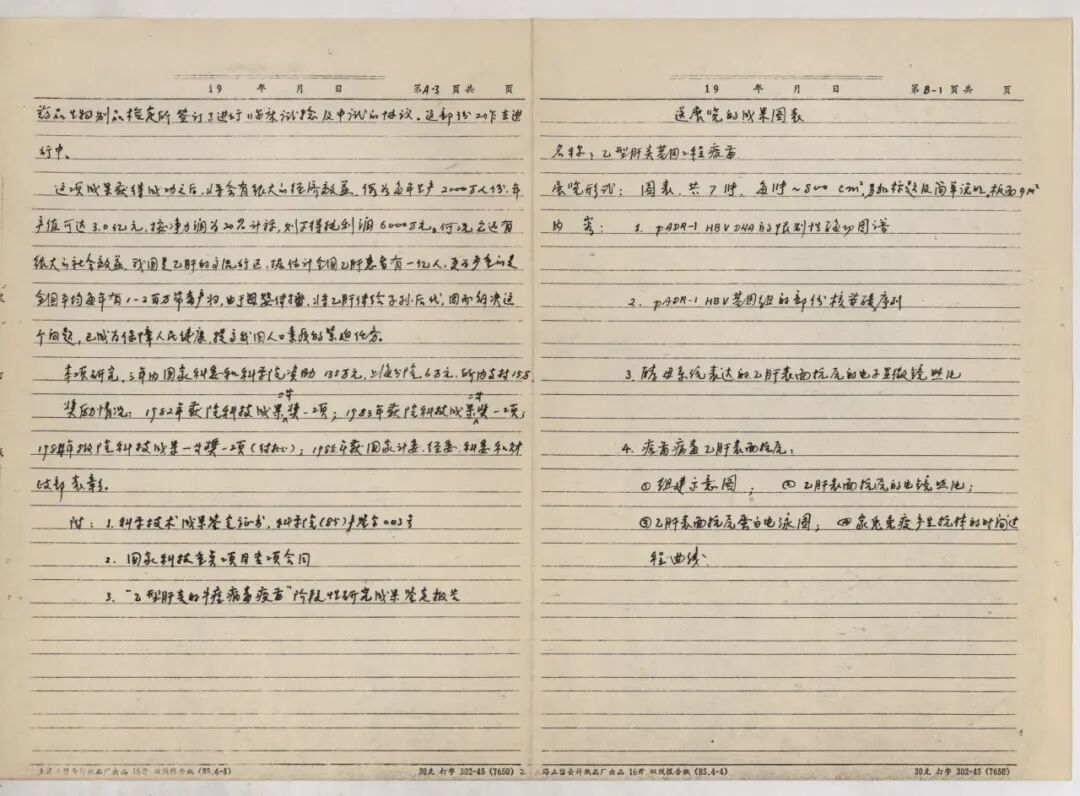 19 年 月 日 第A-3页共 页
药品生物制品检定所签订了进行临床试验及中试的协议。这部份工作在进
行中。
这项成果获得成功之后,将会有很大的经济效益。何为每年生产2000万人份,年
产值可达3.0亿元,按净力润为20%计称,则可得纯利润6000万元。何况它还有
很大的社会效益。我国是乙肝的高流行区,据估计全国乙肝患者有一亿人,更为严重的是
全国平均每年有1-2百万带毒产妇,由于母婴传播,将乙肝传给子孙后代,因而解决这
个问题,已成为保障人民健康,提高我国人口素质的紧迫任务。
本项研究,三年内国家科委和科学院资助135万元,上海分院6万元,所内支持15万
奖励情况:1982年获院科技成果二等奖一项;1983年获院科技成果二等奖一项;
1984年报院科技成果一等奖一项(待批);1985年获国家计委、经委、科委和财
政部表彰。
附:1.科学技术成果鉴定证书,科学院(85)沪鉴字003号
2.国家科技重点项目专项合同
3.“乙型肝炎的牛痘病毒疫苗”阶段性研究成果鉴定报告
信会计纸品厂出品 16开 双线报告纸 (85.4-4) 30克 打字 302-45 (7650)
19 年 月 日 第B-1页共 页
送展览的成果图表
名称:乙型肝炎基因工程疫苗
展览形式:图表,共7帧,每帧~800 cm²,另加标题及简单说明,板面9m²
内容:1. pADR-1 HBV DNA的限制性酶切图谱
2. pADR-1 HBV基因组的部份核苷酸序列
3.酵母系统表达的乙肝表面抗原的电子显微镜照片
4.痘苗病毒乙肝表面抗原:
①组建示意图; ②乙肝表面抗原的电镜照片;
③乙肝表面抗原蛋白电泳图; ④家兔免疫产生抗体的时间过
程曲线.
上海立信会计纸品厂出品 16开 双线报告纸 (85.4-4) 30克 打字 302-45 (7650)